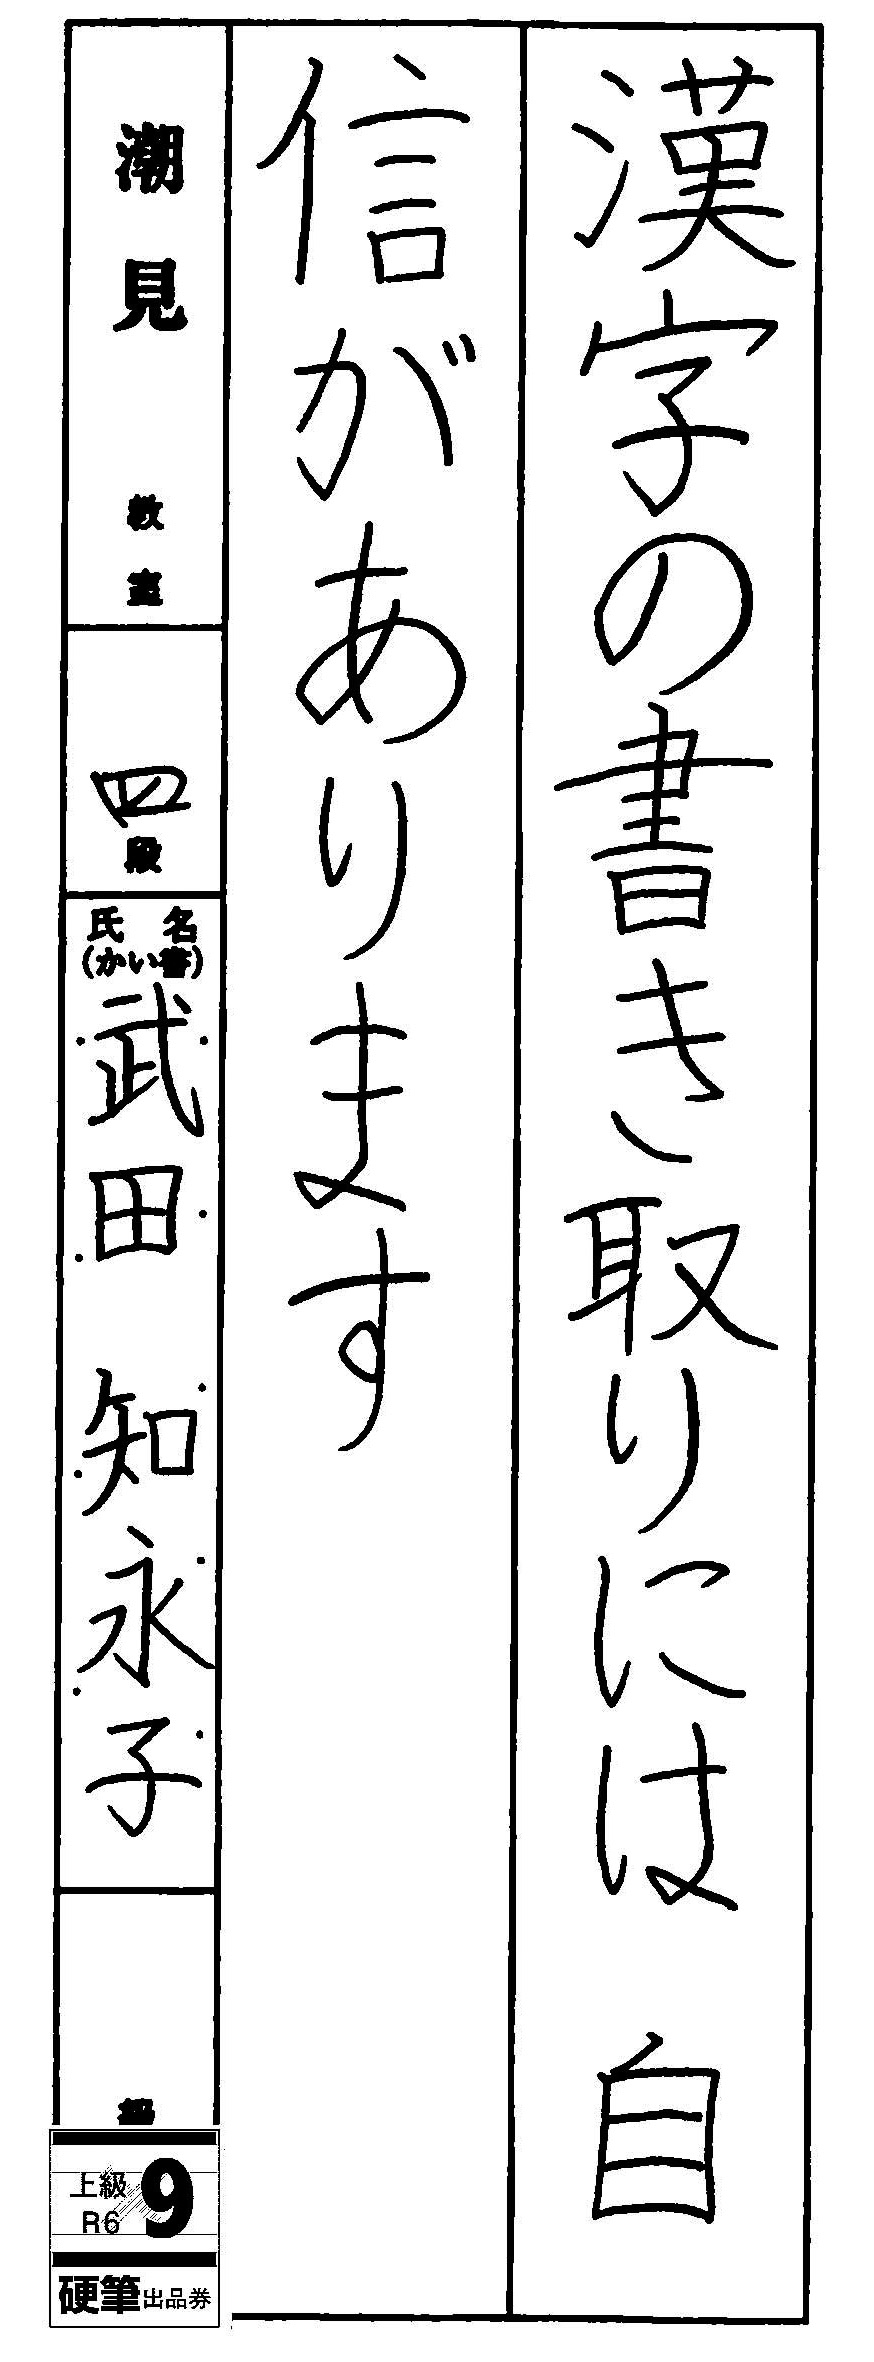 漢字の書き取りには 自
信があります
潮見 教室
四段
氏名
(かい書)
武田 知永子
級
上級
R6
9
硬筆出品券